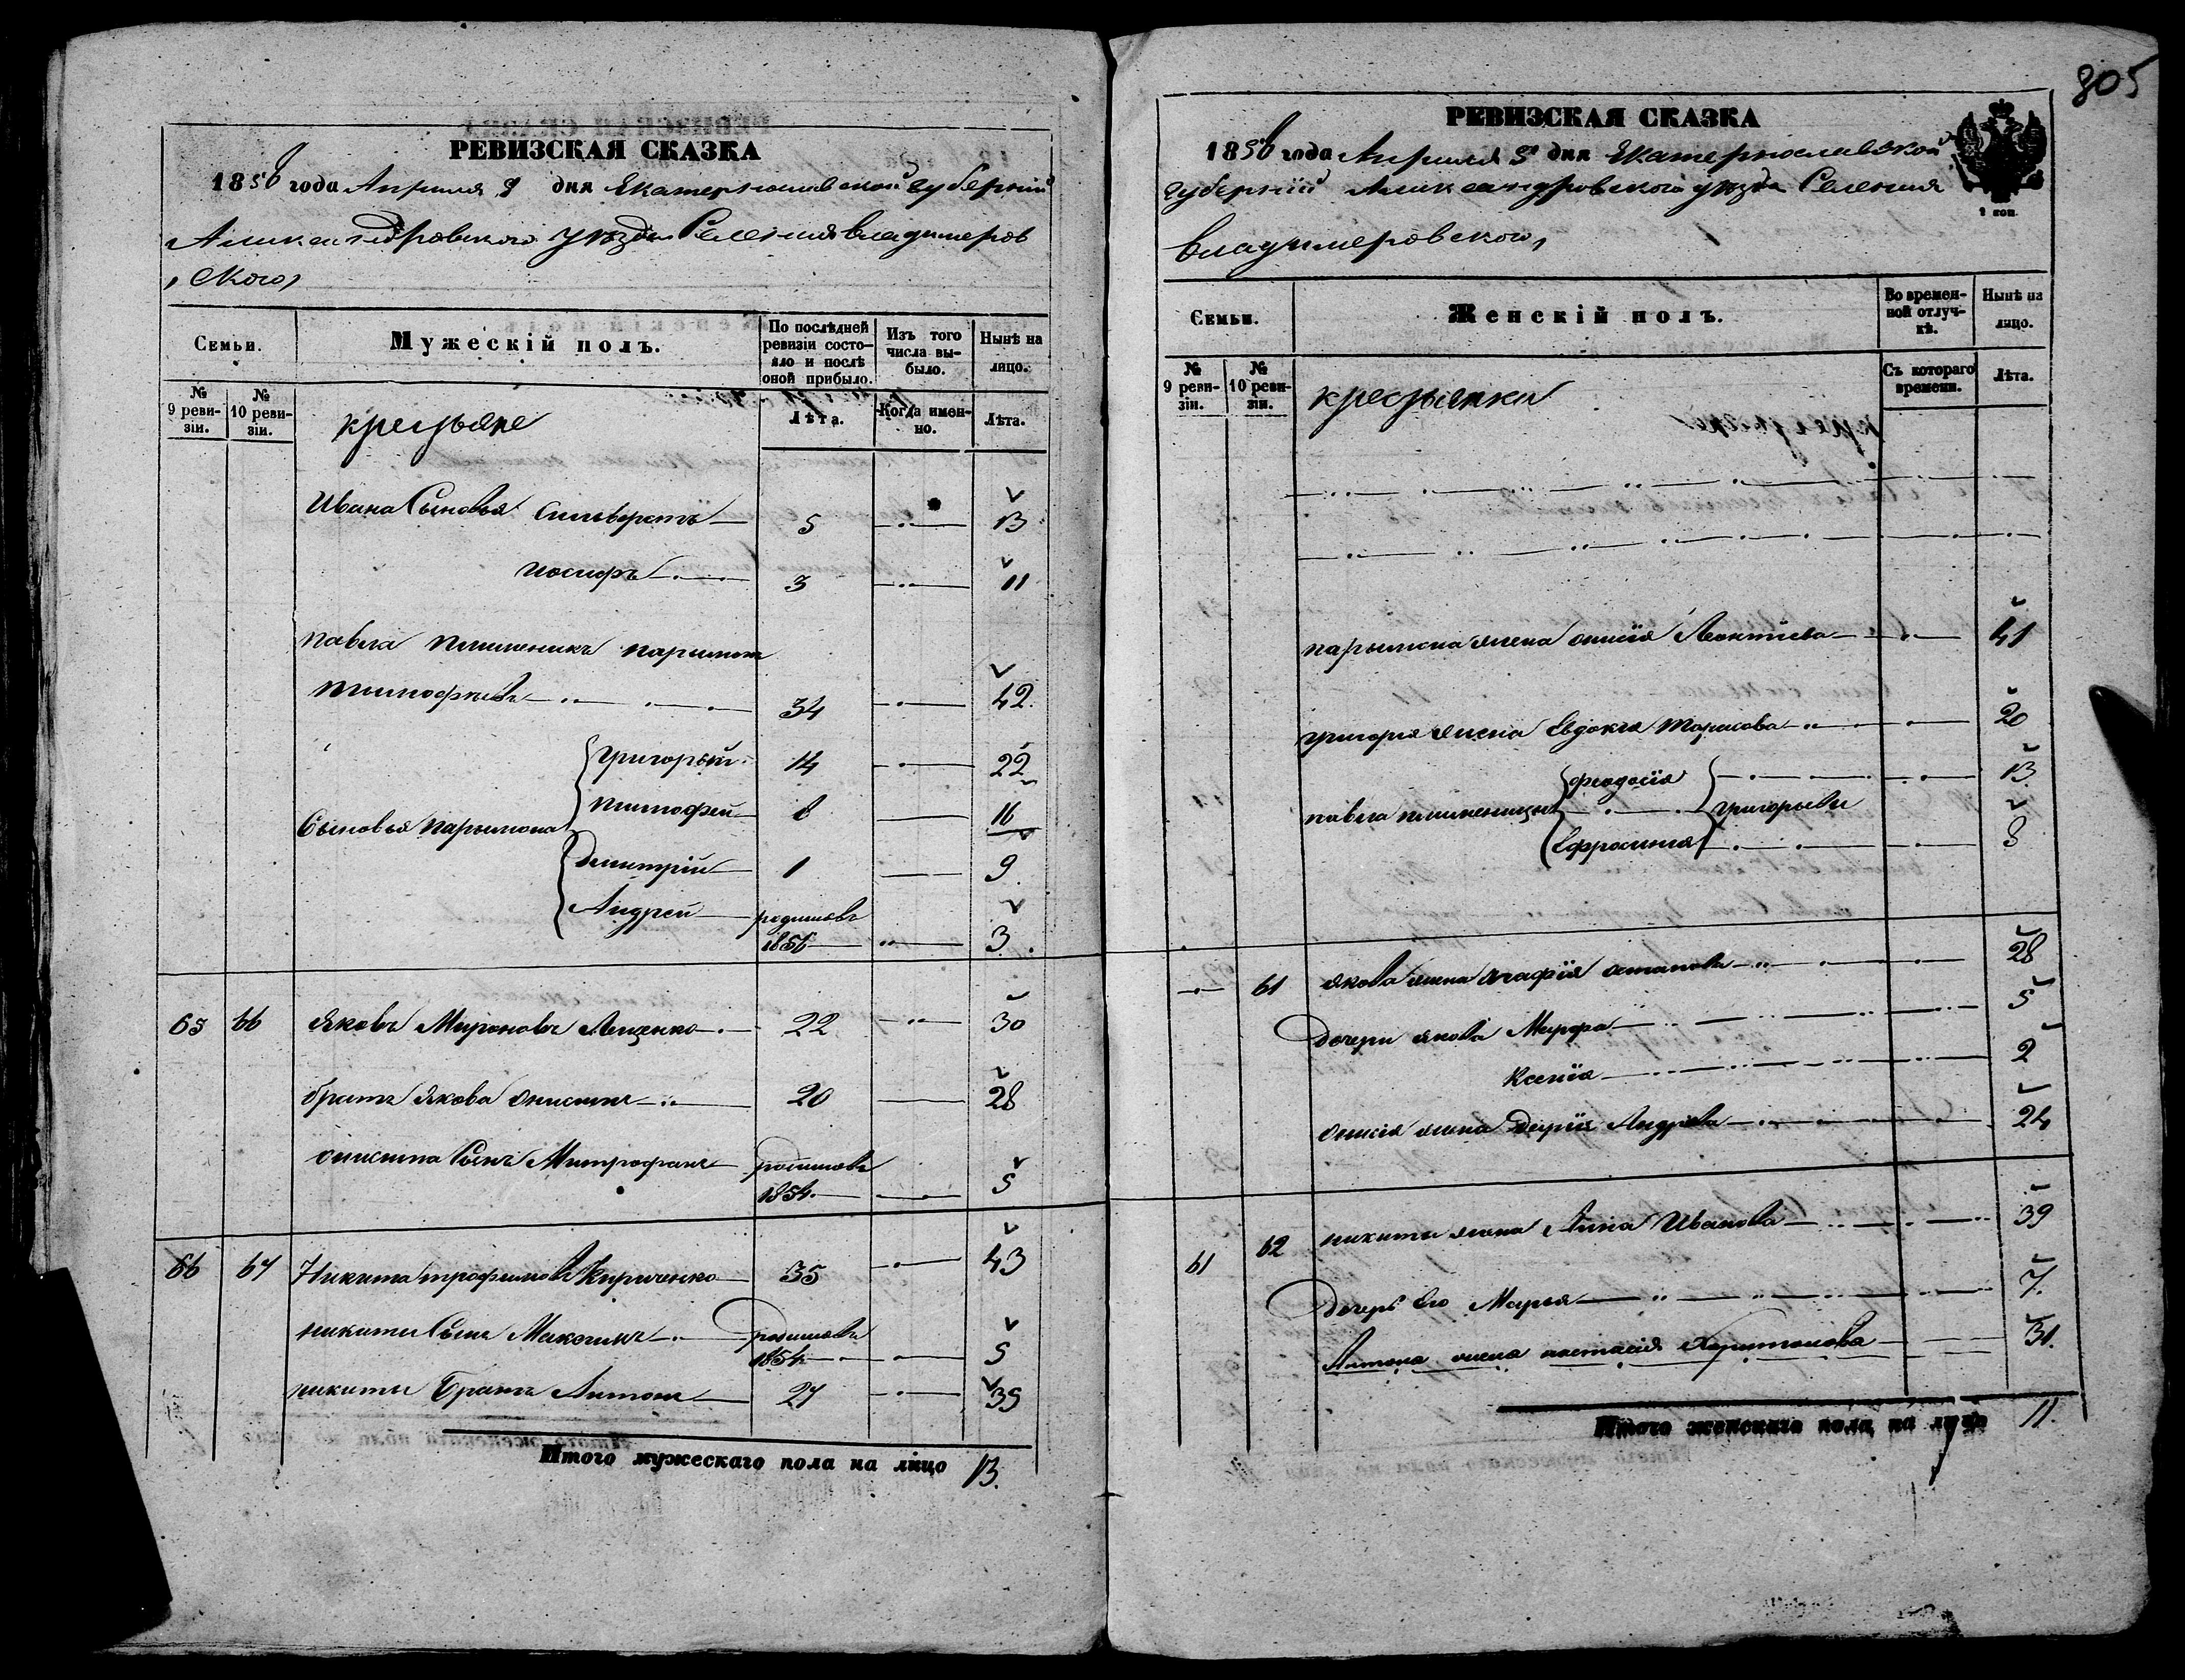 РЕВИЗСКАЯ СКАЗКА
1858 года Апреля 9 дня Екатеринославской губернiи
Александровского уезда Селения владимеров
ского
Семьи.
Мужескiй полъ.
По послѣдней ревизiи состояло и послѣ оной прибыло.
Изъ того числа выбыло.
Нынѣ на лицо.
№ 9 ревизiи.
№ 10 ревизiи.
крестьяне
Лѣта.
Когда именно.
Лѣта.
Ивана Сыновья Сильверстъ 5 13
иосифъ 3 11
павла племеникъ парымон
тимофеевъ 34 42.
григорый 14 22
тимофей 8 16
Сыновья парымона
дмитрiй 1 9
Андрей родился
1856 3.
65 66 Яковъ Мироновъ Лещенко 22 30
братъ якова онисимъ 20 28
онисима Сынъ Митрофанъ родился
1854. 5
66 67 Никита трофимовъ Кириченко 35 43
никиты Сынъ Максимъ родился
1854 5
никиты Братъ Антонъ 27 35
Итого мужескаго пола на лицо 13.
805
РЕВИЗСКАЯ СКАЗКА
1858 года Апреля 9 дня Екатеринославской
губернiи Александровского уезда Селения
владимеровского,
1 коп.
Семьи.
Женскiй полъ.
Во временной отлучкѣ.
Нынѣ на лицо.
№ 9 ревизiи.
№ 10 ревизiи.
крестьянки
Съ котораго времени.
Лѣта.
парымона жена Леонтiева 41
григория жена Евдокия Тарасова 20
феодосiя 13
павла племеницы григорьевы
Ефросиния 8
61 якова жена Агафiя остапова 28
дочери якова Марфа 5
Ксенiя 2
жена Дарiя Андреева 24
61 62 никиты жена Анна Иванова 39
Дочерь Его Марья 7.
Антона жена настасiя Харитонова 31.
Итого женскаго пола на лицо 11.